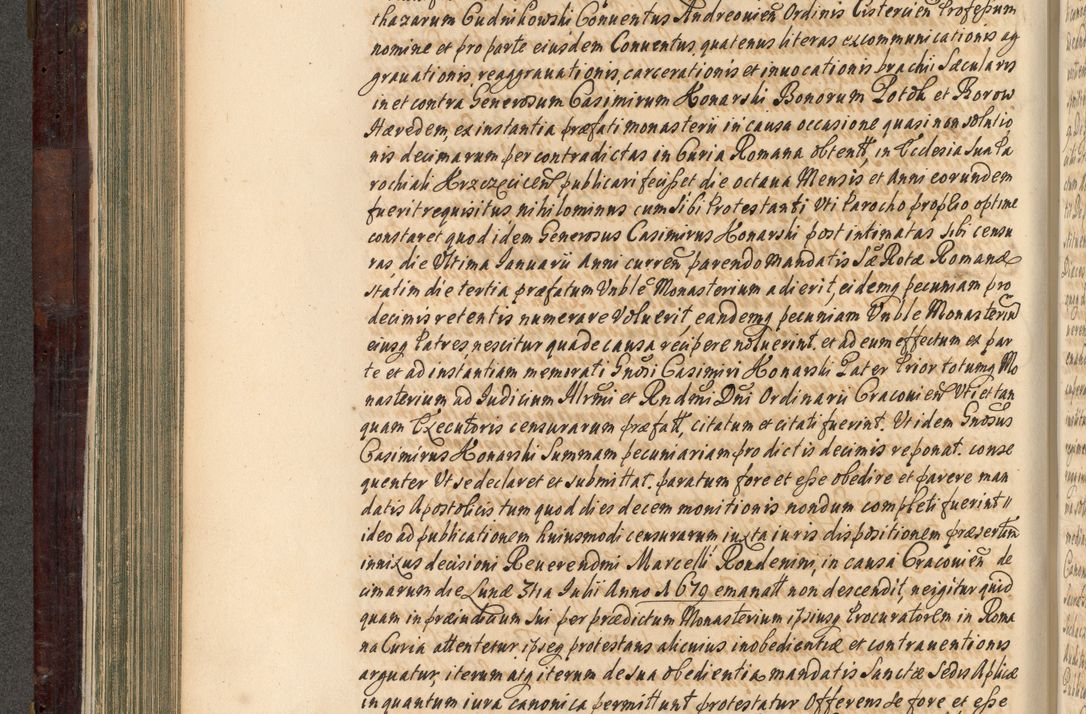 thazarum Cudnikowski Conventus Andreovien Ordinis Cistercien Professum
nomine et pro parte eiusdem Conuentus, quatenus literas excommunicationis ag
grauationis, reaggrauationis, carcerationis et inuocationis brachii Sæcularis
in et contra Generosum Casimirum Konarski Bonorum Potok et Borow
Hæredem, ex instantia præfati monasterii in causa occasione quasi non solutio
nis decimarum per contradictas in Curia Romana obtent, in Ecclesia sua Pa
rochiali publicari fecisset die octaua Mensis et Anni eorundem
fuerit requisitus nihilominus cum sibi Protestanti Uti Parocho proprio optime
constaret quod idem Generosus Casimirus Konarski post intimatas sibi censu
ras die Ultima Ianuarii Anni curren parendo Mandatis Sæ Rotæ Romanæ
statim die tertia præfatum Unble Monasterium adierit, eidemq pecuniam pro
decimis retentis numerare Voluerit, eandemq pecuniam Unble Monasterium
eiusq Patres nescitur qua de causa recipere noluerint. et ad eum effectum ex par
te et ad instantiam memorati Gnosi Casimiri Konarski Pater Prior totumq Mo
nasterium ad Iudicium Illrmi et Rndmi Dni Ordinarii Cracouien Uti et tan
quam Executoris censurarum præfatt, citatum et citati fuerint. Ut idem Gnosus
Casimirus Konarski summam pecuniariam pro dictis decimis reponat. conse
quenter Ut se declaret et submittat. paratum fore et esse obedire et parere man
datis Apostolicis tum quod dies decem monitionis nondum completi fuerint //
ideo ad publicationem huiusmodi censurarum iuxta iuris dispositionem præsertim
innixus decisioni Reuerendmi Marcelli Rondenim, in causa Cracouien de
cimarum die Lunæ 31a Iulii Anno 1679 emanatt non descendit, ne igitur quid
quam in præiudicium sui per prædictum Monasterium ipsiusq Procuratorem in Roma
na Curia attentetur, ipseq protestans alicuius inobedientiæ et contrauentionis
arguatur, iterum atq iterum de sua obedientia mandatis Sanctæ Sedis Aplicæ
inquantum iura canonica permittunt protestatur Offerens se fore et esse